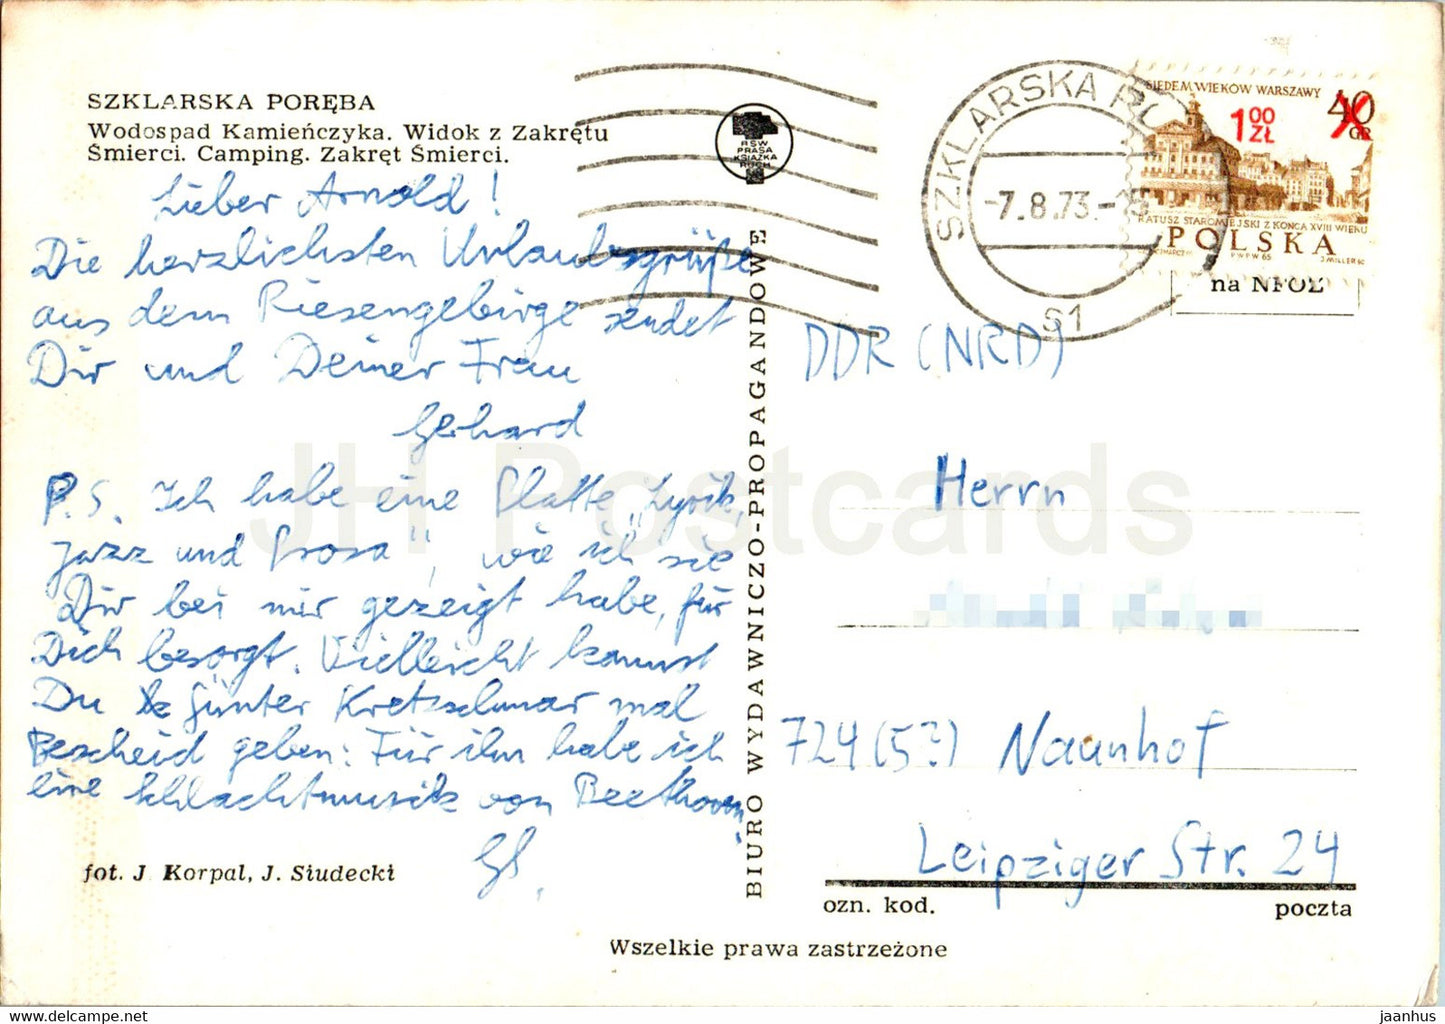 SZKLARSKA PORĘBA
Wodospad Kamieńczyka. Widok z Zakrętu
Śmierci. Camping. Zakręt Śmierci.
Lieber Arnold!
Die herzlichsten Urlaubsgrüße
aus dem Riesengebirge sendet
Dir und Deiner Frau
Gerhard
P.S. Ich habe eine Platte „Lyrik,
Jazz und Prosa", wie ich sie
Dir bei mir gezeigt habe, für
Dich besorgt. Vielleicht kannst
Du Günter Kretzschmar mal
Bescheid geben: Für ihn habe ich
eine Schlachtmusik von Beethoven.
fot. J. Korpal, J. Siudecki
RSW
PRASA
KSIĄŻKA
RUCH
BIURO WYDAWNICZO-PROPAGANDOWE
SZKLARSKA PO
-7.8.73.-15
S1
SIEDEM WIEKÓW WARSZAWY
1 00 ZŁ
40 GR
RATUSZ STAROMIEJSKI Z KOŃCA XVIII WIEKU
POLSKA
PWPW 65
J.MILLER SC.
na NFOZ
DDR (NRD)
Herrn
724 (5?) Naunhof
Leipziger Str. 24
ozn. kod.
poczta
Wszelkie prawa zastrzeżone
JH Postcards
jaanhus © HipPostcard.com